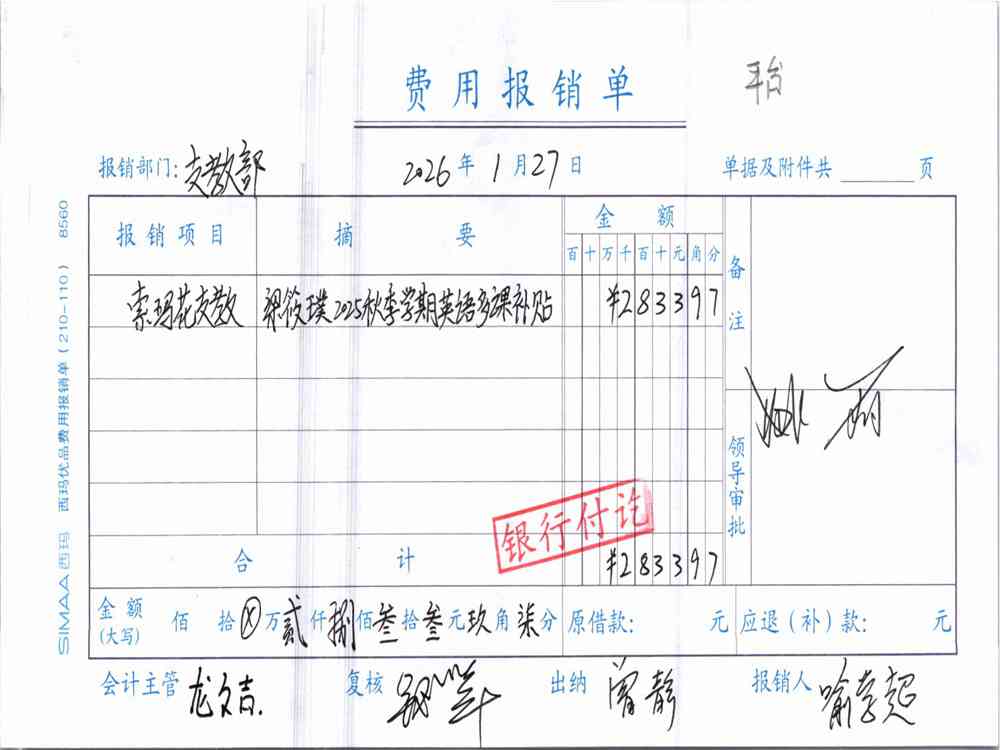 平台
费用报销单
报销部门: 支教部 2026年1月27日 单据及附件共 页
报销项目 摘要 金额 备注
百十万千百十元角分
索玛花支教 梁筱璞2025秋季学期英语多课补贴 ¥283397
领导审批
银行付讫
合计 ¥283397
金额(大写) 佰拾ⓧ万贰仟捌佰叁拾叁元玖角柒分 原借款: 元 应退(补)款: 元
会计主管 龙文吉 复核 出纳 曾静 报销人 喻李超
SIMAA 西玛 西玛优品费用报销单(210-110) 8560